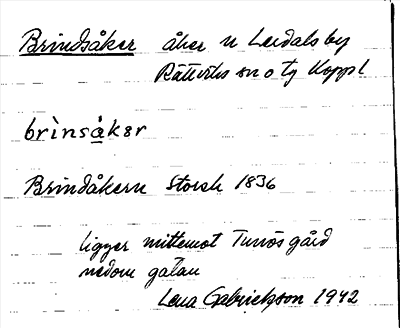 Brindsåker åker n Leidals by
Rättviks sn o tg Koppl
brinsåkər
Brindåkern Storsk 1836
ligger mittemot gård
nedom gatan
Lena Gabrielsson 1942